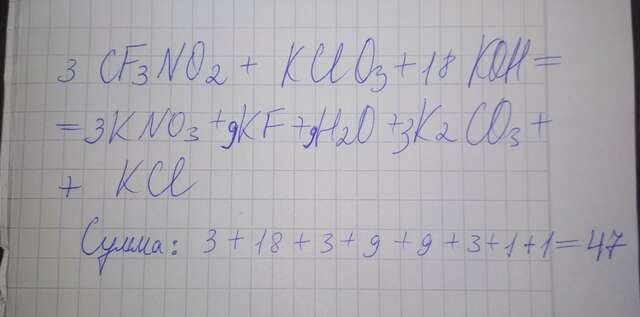 3 CF3NO2 + KClO3 + 18 KOH =
= 3KNO3 + 9KF + 9H2O + 3K2CO3 +
+ KCl
Сумма: 3 + 18 + 3 + 9 + 9 + 3 + 1 + 1 = 47